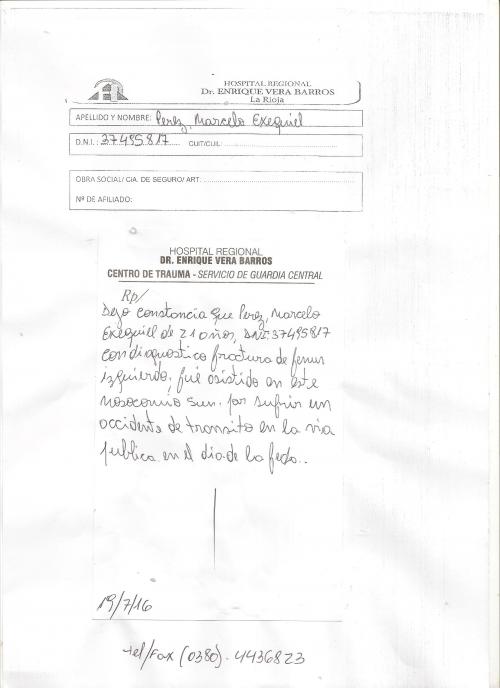 HOSPITAL REGIONAL
Dr. ENRIQUE VERA BARROS
La Rioja
APELLIDO Y NOMBRE: Perez, Marcelo Exequiel
D.N.I.: 37495817 CUIT/CUIL:
OBRA SOCIAL/ CIA. DE SEGURO/ ART:
Nº DE AFILIADO:
HOSPITAL REGIONAL
DR. ENRIQUE VERA BARROS
CENTRO DE TRAUMA - SERVICIO DE GUARDIA CENTRAL
Rp/
Dejo constancia que Perez, Marcelo
Exequiel de 21 años, DNI: 37495817
con diagnostico fractura de femur
izquierdo, fué asistido en este
nosocomio por sufrir un
accidente de transito en la via
publica en el dia de la fecha..
19/7/16
tel/fax (0380) - 4436823